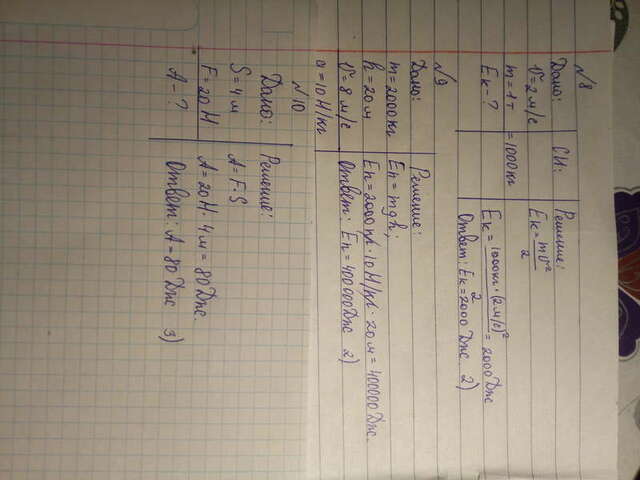 №8
Дано: СИ: Решение:
υ=2 м/с Eк = mυ²/2
m=1т =1000кг
Eк-? Eк = 1000кг·(2м/с)²/2 = 2000 Дж
Ответ: Eк=2000 Дж 2)
№9
Дано: Решение:
m=2000кг Eп = mgh;
h=20м Eп=2000кг·10Н/кг·20м=400000Дж.
υ=8 м/с Ответ: Eп=400000Дж 2)
=10Н/кг
№10
Дано: Решение:
S=4м A=F·S
F=20Н A=20Н·4м=80Дж.
A-? Ответ: A=80Дж 3)